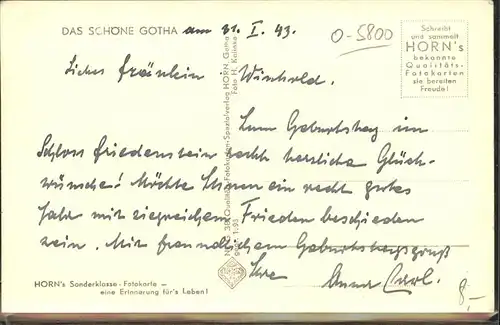 DAS SCHÖNE GOTHA am 31. I. 43.
O-5800
Schreibt
und sammelt
HORN's
bekannte
Qualitäts-
Fotokarten
sie bereiten
Freude!
Liebes Fräulein Winhold.
Zum Geburtstag im
Schloss Friedenstein recht herzliche Glück-
wünsche! Möchte Ihnen ein recht gutes
Jahr mit siegreichem Frieden beschieden
sein. Mit freundlichem Geburtstagsgruß
Ihre Anna Carl.
8,-
Qualitäts-Fotokarten-Spezialverlag HORN, Gotha
Foto H.
HORN's Sonderklasse-Fotokarte —
eine Erinnerung für's Leben!